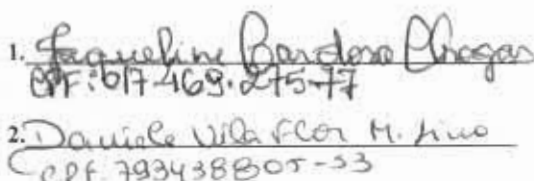 1. Jaqueline Cardoso Chagas
CPF: 617.469.275-77
2. Daniele Vila Flor M. Lino
CPF. 793438805-53